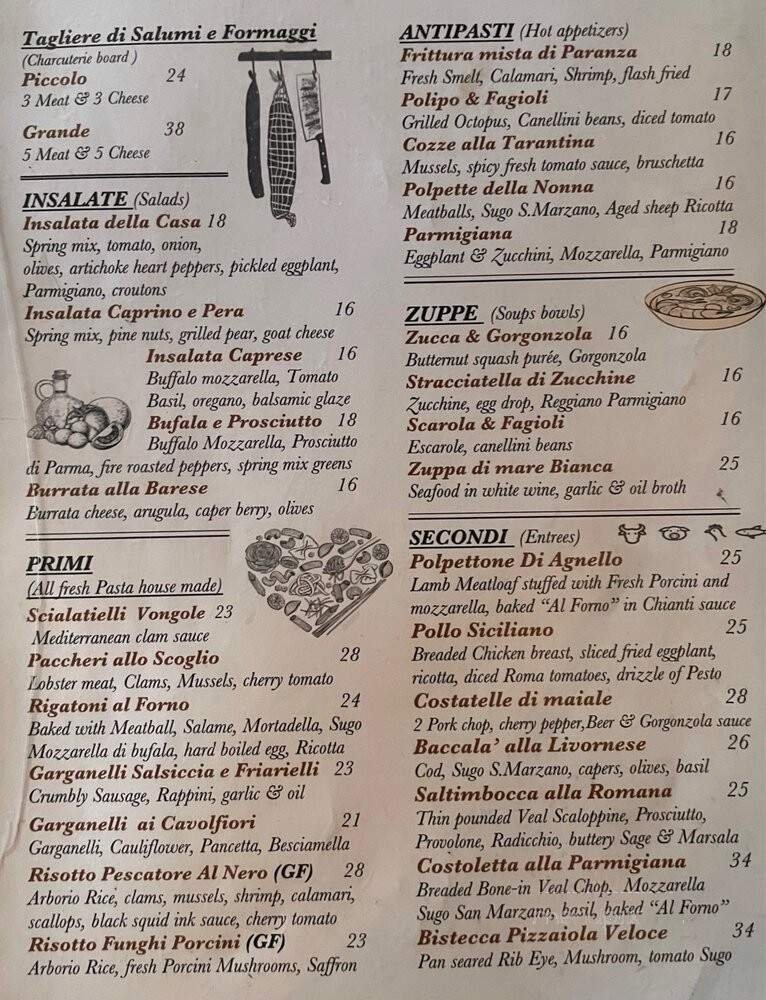 Tagliere di Salumi e Formaggi
(Charcuterie board )
Piccolo 24
3 Meat & 3 Cheese
Grande 38
5 Meat & 5 Cheese
INSALATE (Salads)
Insalata della Casa 18
Spring mix, tomato, onion,
olives, artichoke heart peppers, pickled eggplant,
Parmigiano, croutons
Insalata Caprino e Pera 16
Spring mix, pine nuts, grilled pear, goat cheese
Insalata Caprese 16
Buffalo mozzarella, Tomato
Basil, oregano, balsamic glaze
Bufala e Prosciutto 18
Buffalo Mozzarella, Prosciutto
di Parma, fire roasted peppers, spring mix greens
Burrata alla Barese 16
Burrata cheese, arugula, caper berry, olives
PRIMI
(All fresh Pasta house made)
Scialatielli Vongole 23
Mediterranean clam sauce
Paccheri allo Scoglio 28
Lobster meat, Clams, Mussels, cherry tomato
Rigatoni al Forno 24
Baked with Meatball, Salame, Mortadella, Sugo
Mozzarella di bufala, hard boiled egg, Ricotta
Garganelli Salsiccia e Friarielli 23
Crumbly Sausage, Rappini, garlic & oil
Garganelli ai Cavolfiori 21
Garganelli, Cauliflower, Pancetta, Besciamella
Risotto Pescatore Al Nero (GF) 28
Arborio Rice, clams, mussels, shrimp, calamari,
scallops, black squid ink sauce, cherry tomato
Risotto Funghi Porcini (GF) 23
Arborio Rice, fresh Porcini Mushrooms, Saffron
ANTIPASTI (Hot appetizers)
Frittura mista di Paranza 18
Fresh Smelt, Calamari, Shrimp, flash fried
Polipo & Fagioli 17
Grilled Octopus, Canellini beans, diced tomato
Cozze alla Tarantina 16
Mussels, spicy fresh tomato sauce, bruschetta
Polpette della Nonna 16
Meatballs, Sugo S.Marzano, Aged sheep Ricotta
Parmigiana 18
Eggplant & Zucchini, Mozzarella, Parmigiano
ZUPPE (Soups bowls)
Zucca & Gorgonzola 16
Butternut squash purée, Gorgonzola
Stracciatella di Zucchine 16
Zucchine, egg drop, Reggiano Parmigiano
Scarola & Fagioli 16
Escarole, canellini beans
Zuppa di mare Bianca 25
Seafood in white wine, garlic & oil broth
SECONDI (Entrees)
Polpettone Di Agnello 25
Lamb Meatloaf stuffed with Fresh Porcini and
mozzarella, baked "Al Forno" in Chianti sauce
Pollo Siciliano 25
Breaded Chicken breast, sliced fried eggplant,
ricotta, diced Roma tomatoes, drizzle of Pesto
Costatelle di maiale 28
2 Pork chop, cherry pepper,Beer & Gorgonzola sauce
Baccala' alla Livornese 26
Cod, Sugo S.Marzano, capers, olives, basil
Saltimbocca alla Romana 25
Thin pounded Veal Scaloppine, Prosciutto,
Provolone, Radicchio, buttery Sage & Marsala
Costoletta alla Parmigiana 34
Breaded Bone-in Veal Chop, Mozzarella
Sugo San Marzano, basil, baked "Al Forno"
Bistecca Pizzaiola Veloce 34
Pan seared Rib Eye, Mushroom, tomato Sugo